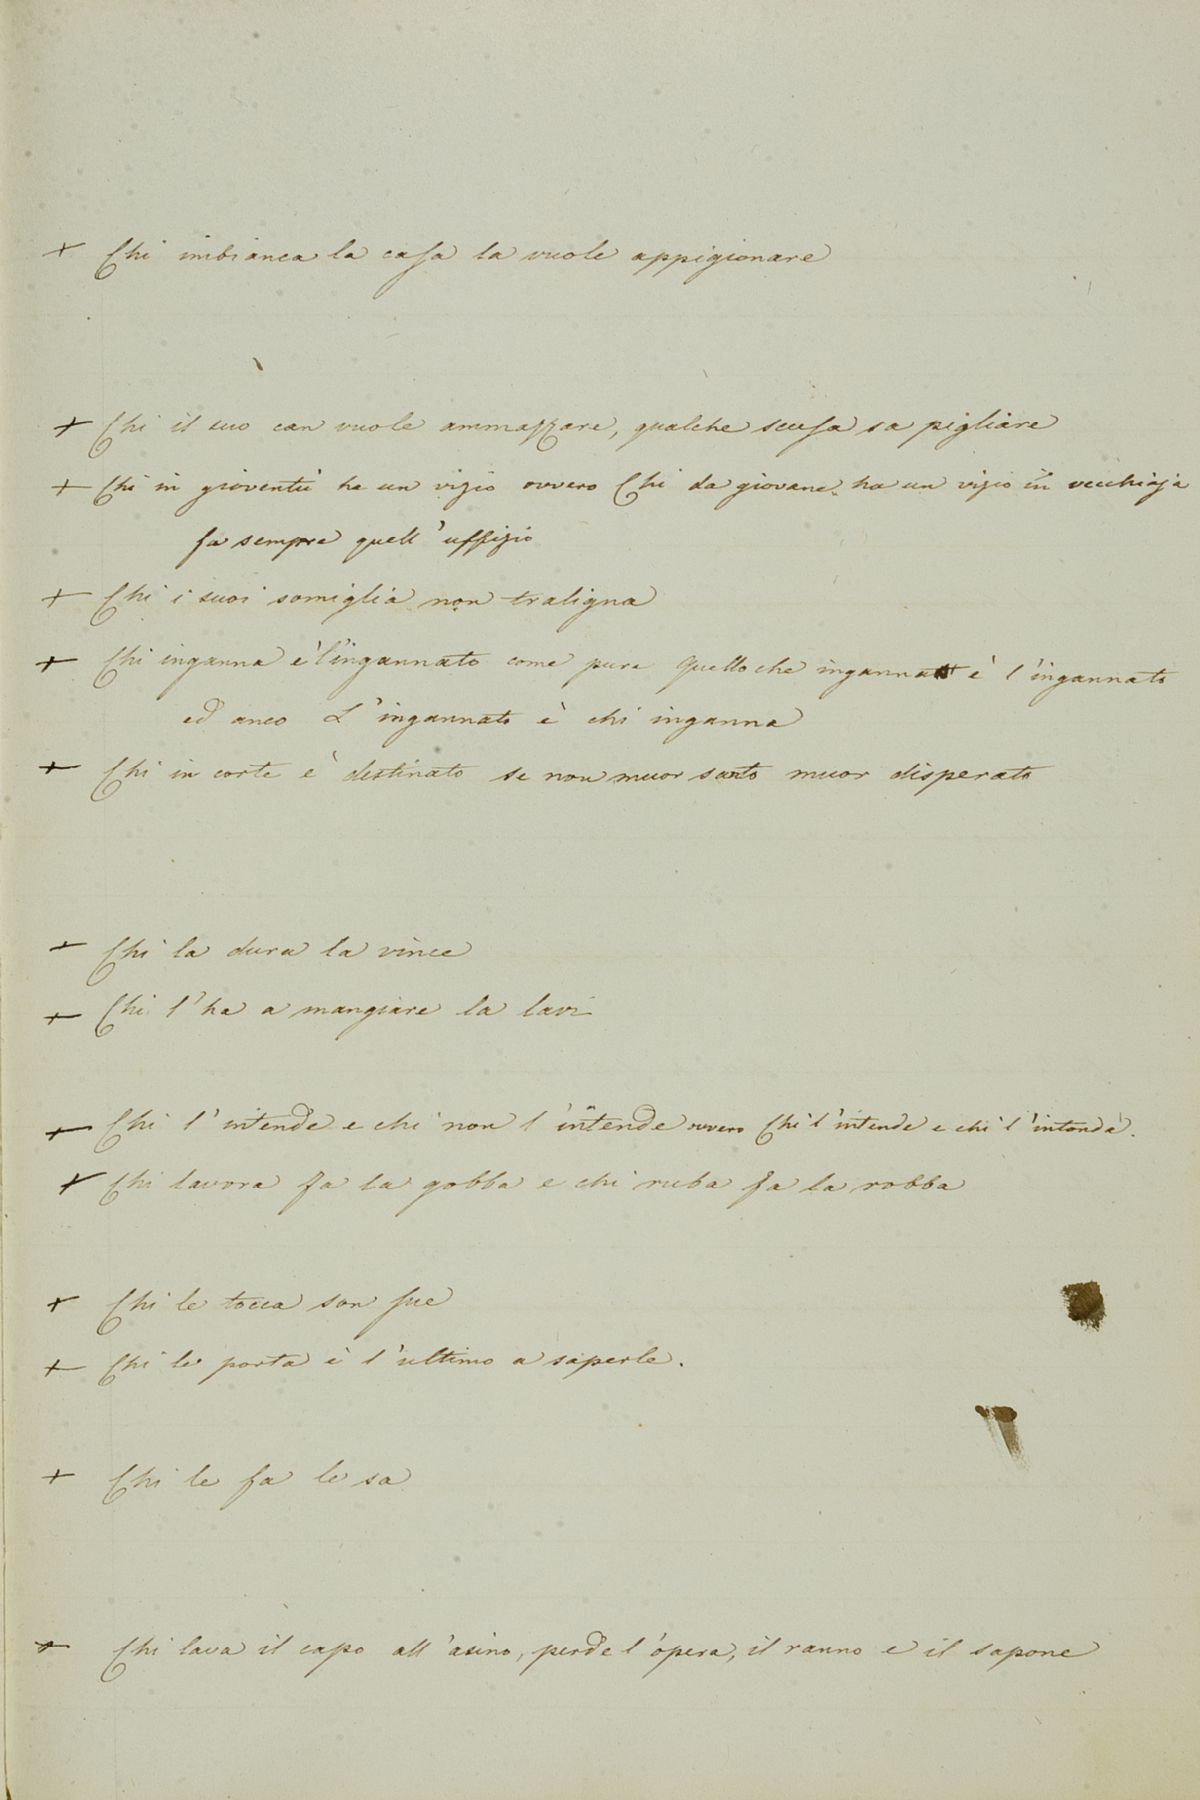 + Chi imbianca la casa la vuole appigionare
+ Chi il suo can vuole ammazzare, qualche scusa sa pigliare
+ Chi in gioventù ha un vizio ovvero Chi da giovane ha un vizio in vecchiaja
fa sempre quell'uffizio
+ Chi i suoi somiglia non traligna
+ Chi inganna è l'ingannato come pure Quello che inganna è l'ingannato
ed anco L'ingannato è chi inganna
+ Chi in corte è destinato se non muor santo muor disperato
+ Chi la dura la vince
+ Chi l'ha a mangiare la lavi
+ Chi l'intende e chi non l'intende ovvero Chi l'intende e chi l'intenda.
+ Chi lavora fa la gobba e chi ruba fa la robba
+ Chi le tocca son sue
+ Chi le porta è l'ultimo a saperle.
+ Chi le fa le sa
+ Chi lava il capo all'asino, perde l'opera, il ranno e il sapone